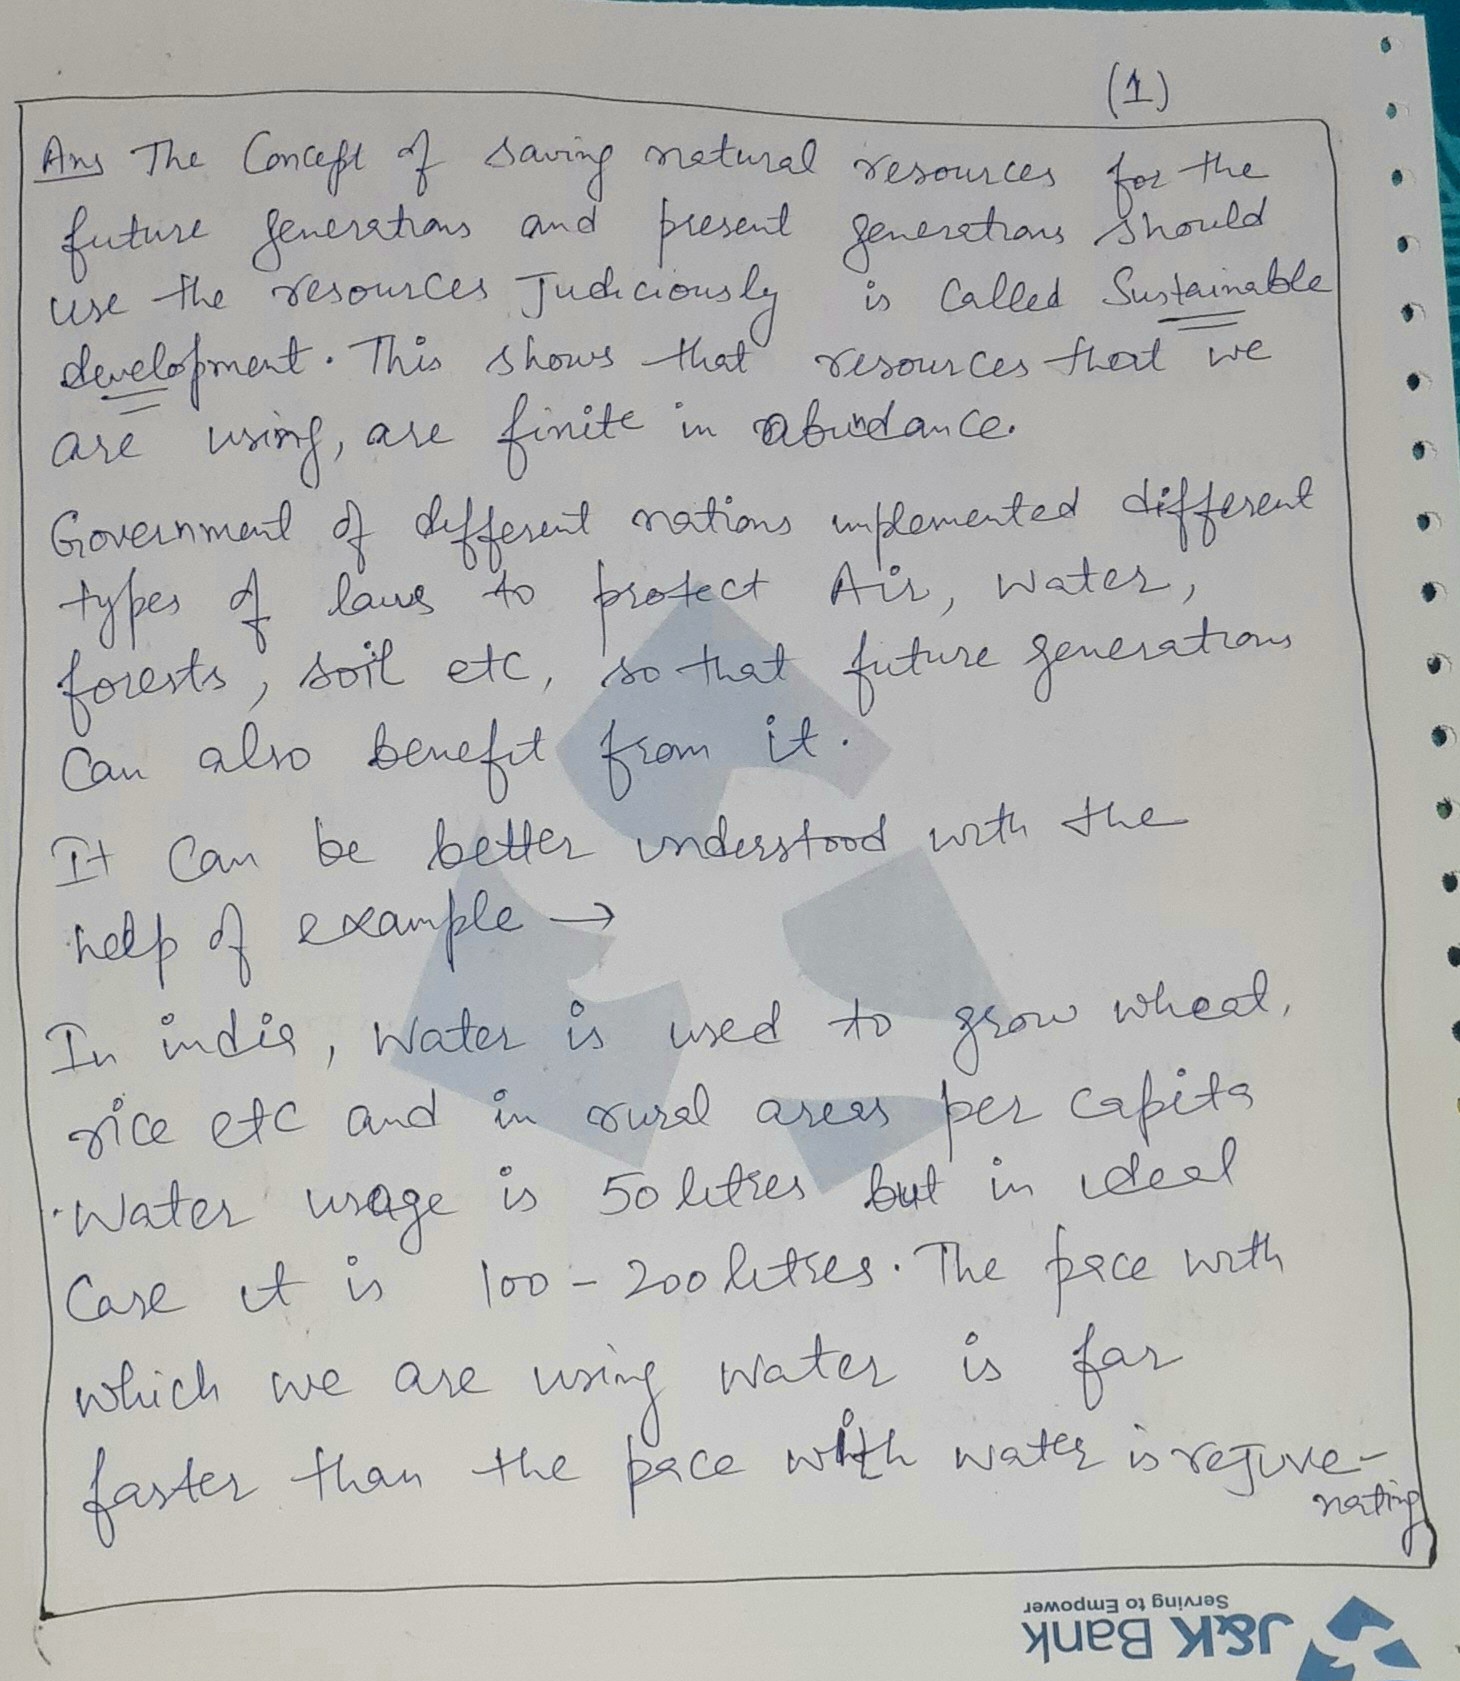 (1)
Ans The Concept of saving natural resources for the
future generations and present generations should
use the resources Judiciously is Called Sustainable
development. This shows that resources that we
are using, are finite in abundance.
Government of different nations implemented different
types of laws to protect Air, Water,
forests, soil etc, so that future generations
Can also benefit from it.
It Can be better understood with the
help of example →
In india, Water is used to grow wheat,
rice etc and in rural areas per capita
Water usage is 50 litres but in ideal
Case it is 100 - 200 litres. The pace with
which we are using water is far
faster than the pace with water is rejuve-
nating
J&K Bank
Serving to Empower